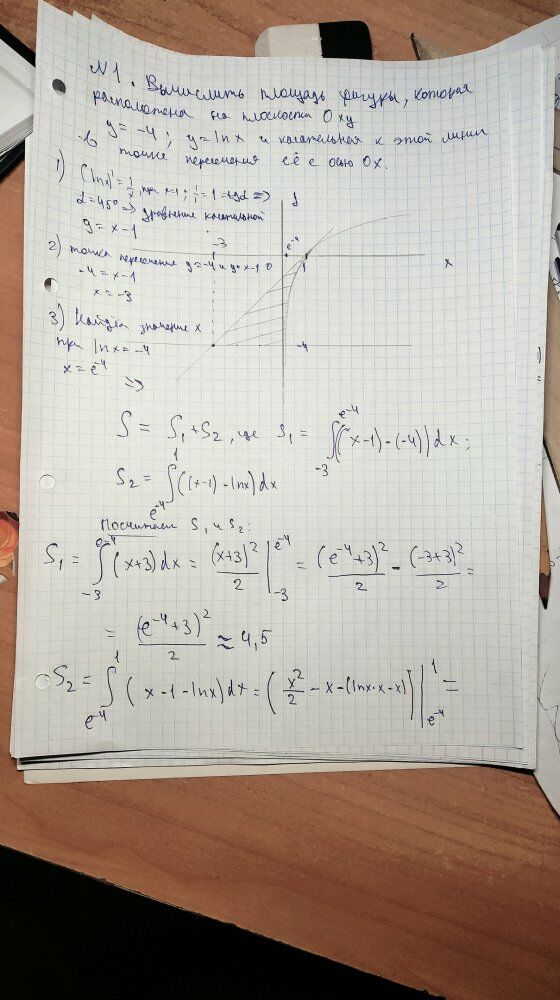 N1. Вычислить площадь фигуры, которая
расположена на плоскости Oxy
y = -4; y = ln x и касательная к этой линии
в точке пересечения её с осью Ox.
1) (ln x)' = 1/x, при x=1; 1/1 = 1 = tgα ⇒
α = 45° ⇒ уравнение касательной
y = x - 1
2) точка пересечения y = -4 и y = x - 1
-4 = x - 1
x = -3
3) Найдём значение x
при ln x = -4
x = e^-4
⇒
y
-3
e^-4
0
1
x
-4
S = S₁ + S₂, где S₁ = ∫_{-3}^{e^-4} ((x-1) - (-4)) dx;
S₂ = ∫_{e^-4}^{1} ((x-1) - ln x) dx
Посчитаем S₁ и S₂:
S₁ = ∫_{-3}^{e^-4} (x+3) dx = (x+3)²/2 |_{-3}^{e^-4} = (e^-4+3)²/2 - (-3+3)²/2 =
= (e^-4+3)²/2 ≈ 4,5
S₂ = ∫_{e^-4}^{1} (x - 1 - ln x) dx = (x²/2 - x - (ln x · x - x)) |_{e^-4}^{1} =